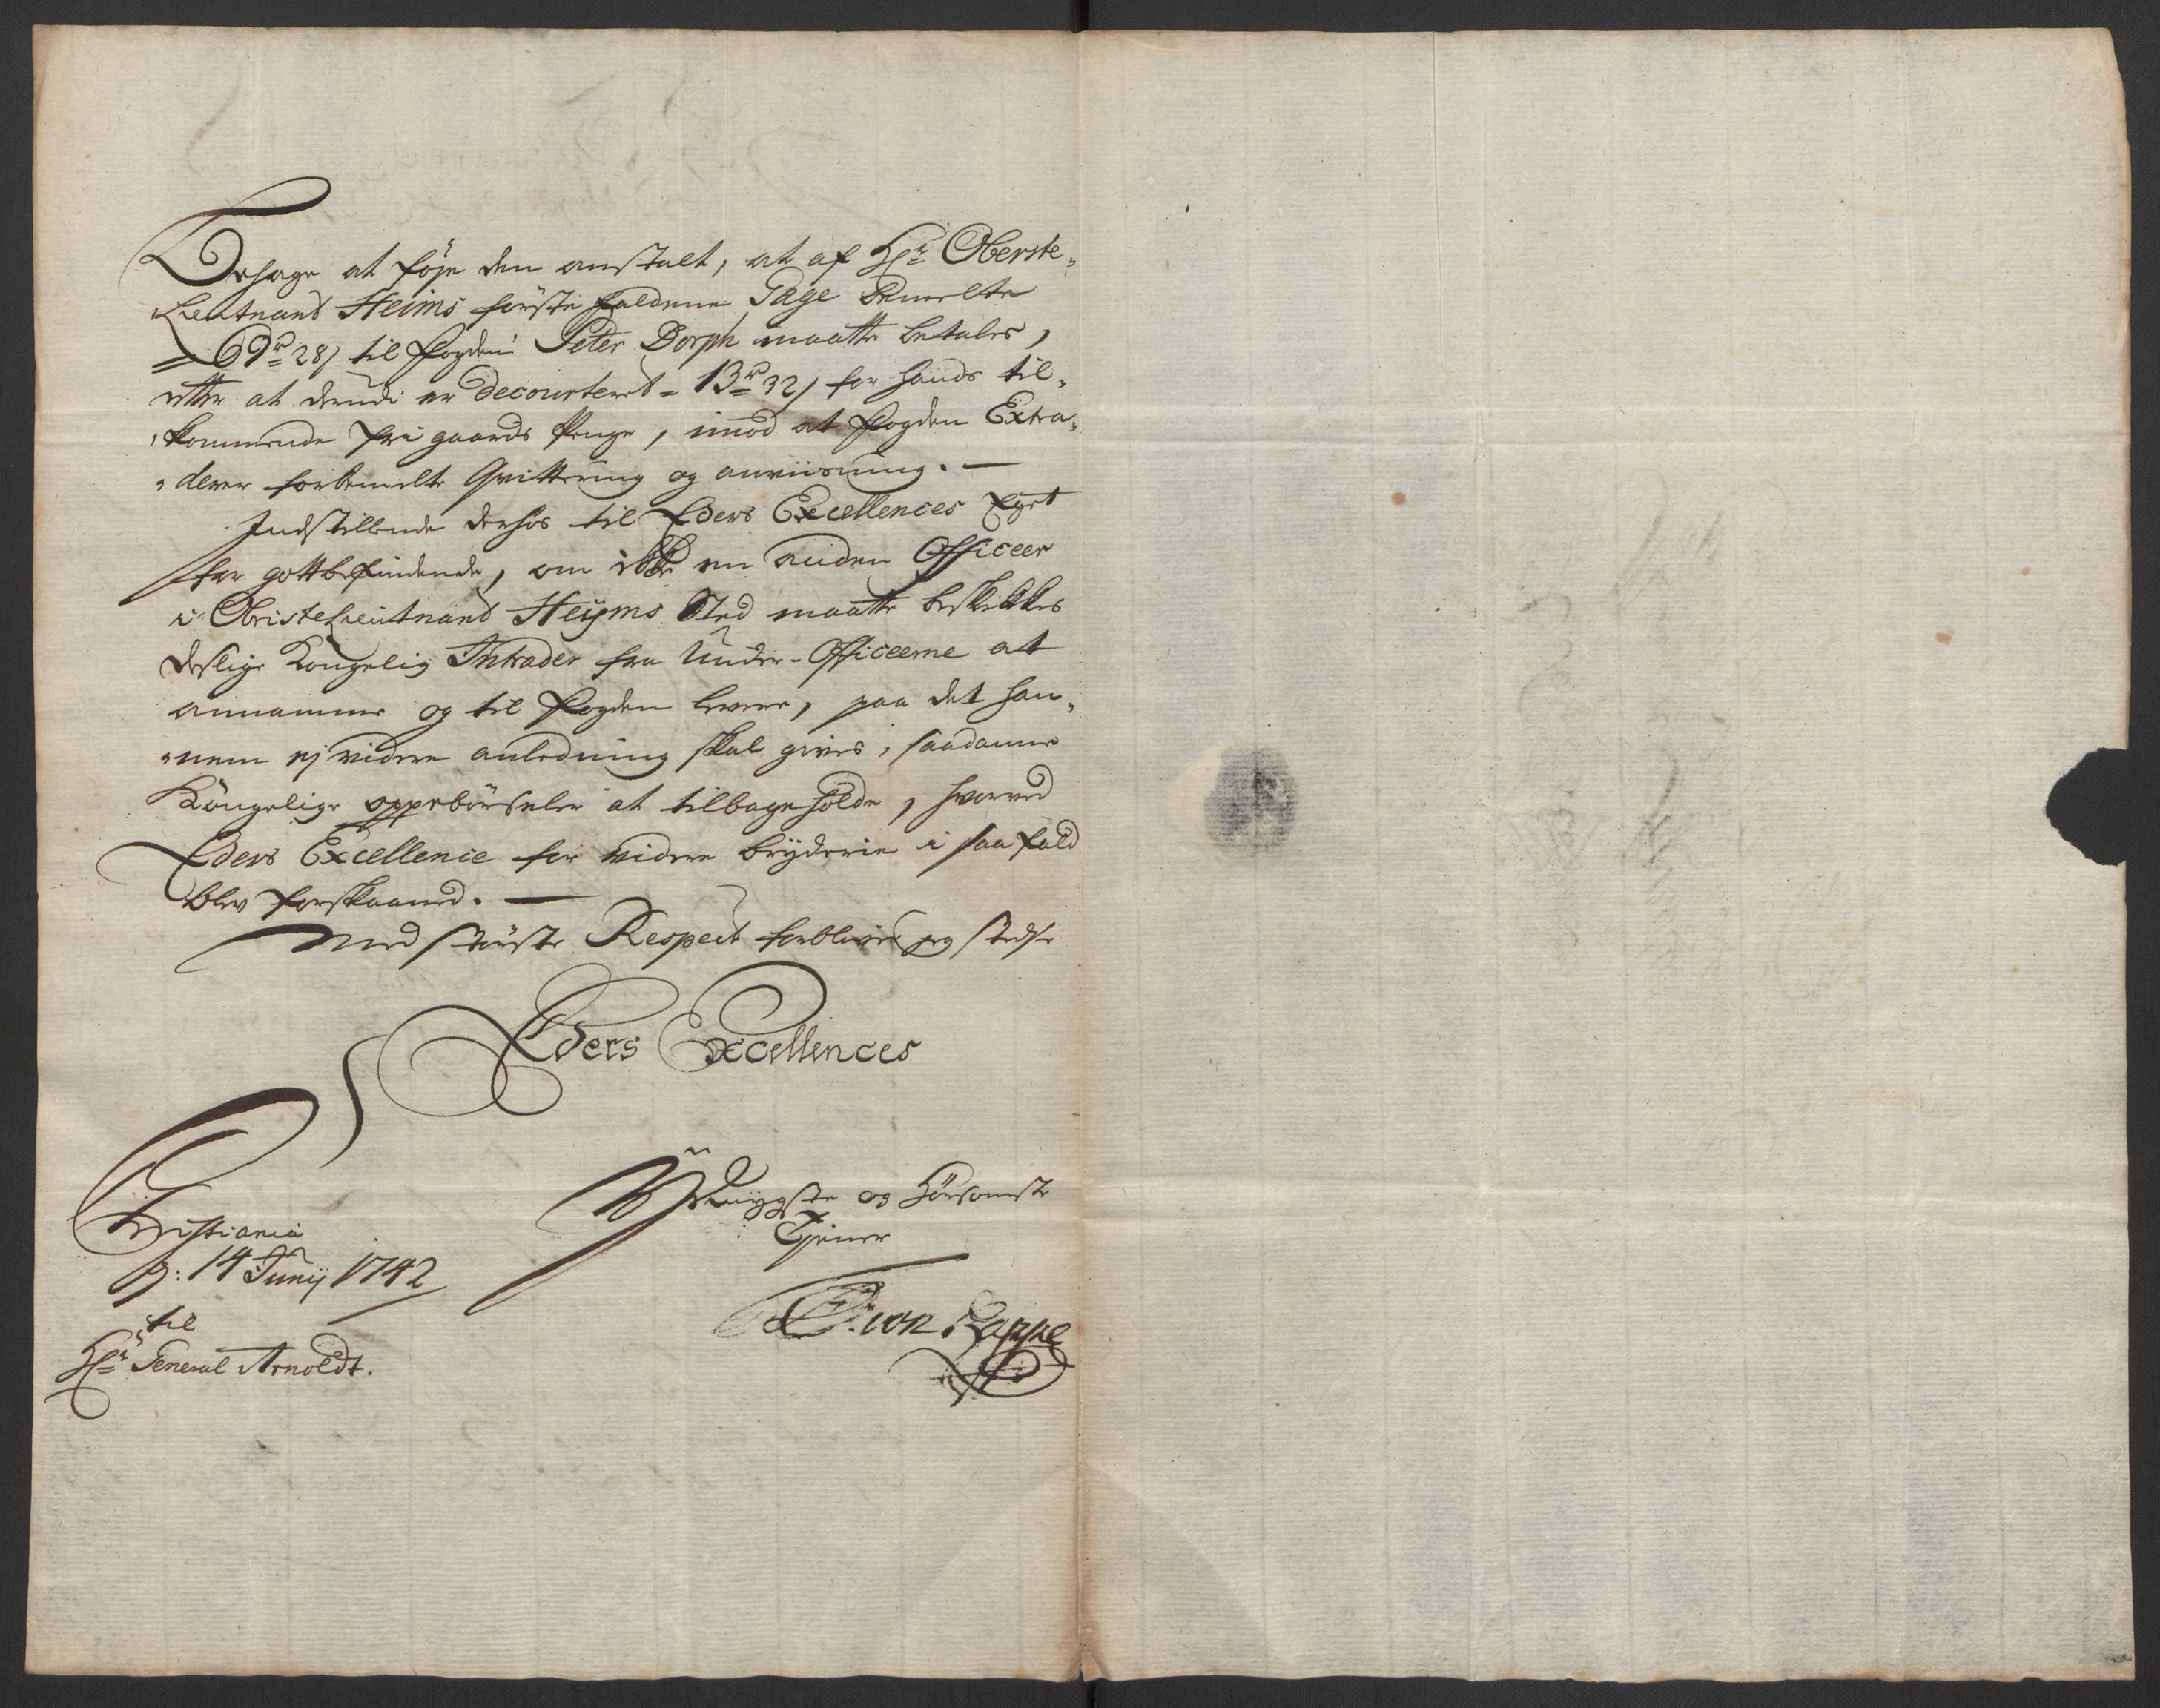 Behage at föje den anstalt, at af Hr Oberste„
„Leutnant Heims förstefaldene Gage bemelte
= 69 rd 28 s til fogden Peter Dorph maatte betales,
efter at derudi er decourteret = 13 rd 32 s for hands til„
„kommende fri gaards Penge, imod at fogden Extra„
„derer forbemelte Qvittering og anviisning. —
Indstillende derhos til Eders Excellences Eget
gottbefindende, om ikke en anden Officeer
i ObristeLieutnant Heyms Sted maatte beskikkes
deslige Kongelig Intrader fra Under-Officeerne at
annamme og til fogden levere, paa det han„
„nem ej videre anledning skal gives, saadanne
Kongelige oppebörseler at tilbageholde, hvorved
Eders Excellence for videre bryderie i saa fald
blev forskaaned. —
Med störste Respect forbliver jeg stedse
Eders Excellences
Christiania
d: 14 Junij 1742
til
Hr General Arnoldt.
Ydmygste og Hörsomste
Tjener
von Rappe